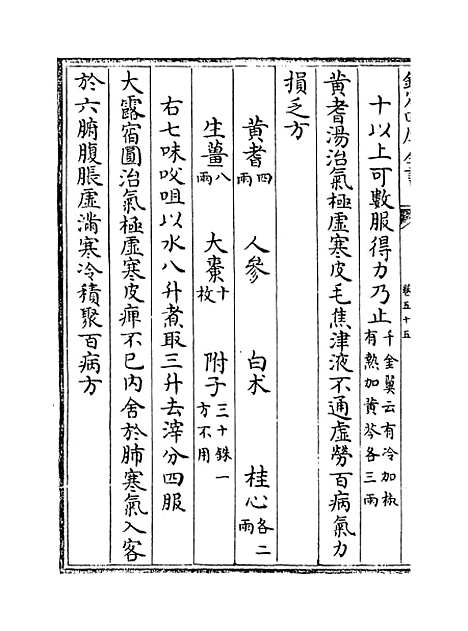 卷五十五
十以上可數服得力乃止千金翼云有冷加椒有熱加黄芩各三兩
黄耆湯治氣極虚寒皮毛焦津液不通虚勞百病氣力
損乏方
黄耆四兩 人參 白术 桂心各二兩
生薑八兩 大棗十枚 附子三十銖一方不用
右七味㕮咀以水八升煮取三升去滓分四服
大露宿圓治氣極虚寒皮痺不已内舍於肺寒氣入客
於六腑腹脹虚滿寒冷積聚百病方